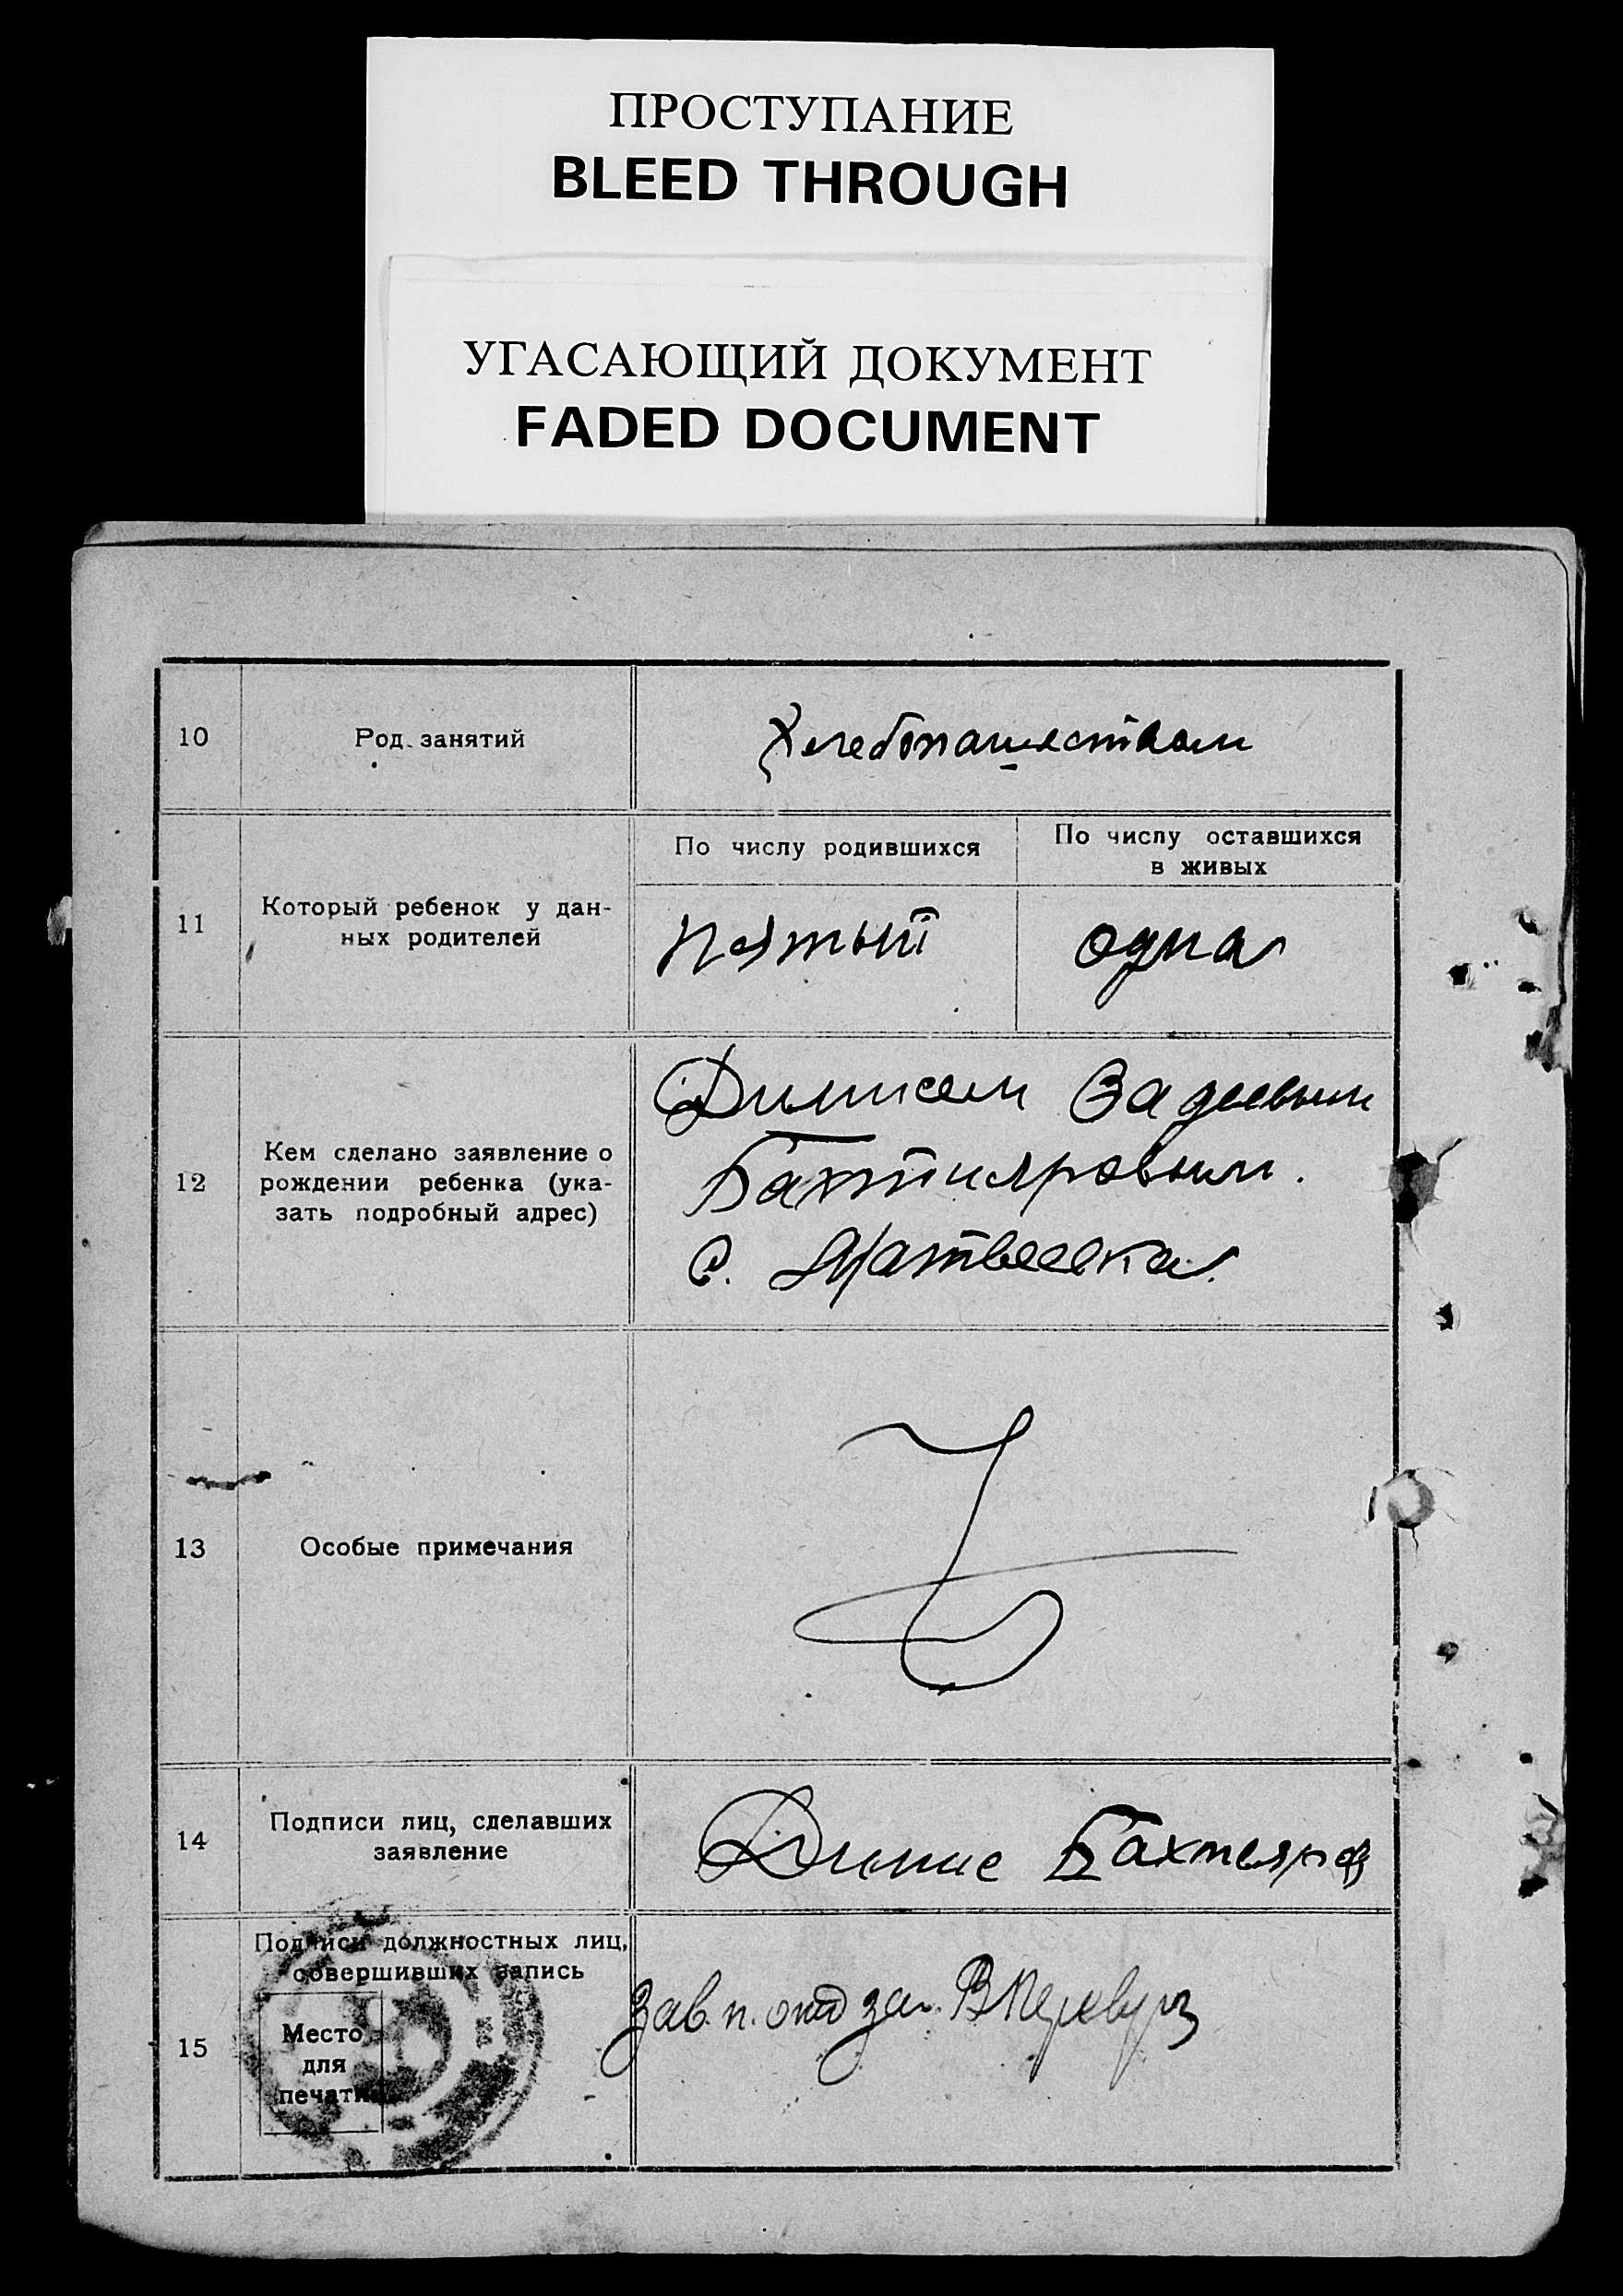 ПРОСТУПАНИЕ
BLEED THROUGH
УГАСАЮЩИЙ ДОКУМЕНТ
FADED DOCUMENT
10
Род занятий
Хлебопашеством
11
Который ребенок у дан-
ных родителей
По числу родившихся
Пятый
По числу оставшихся
в живых
одна
12
Кем сделано заявление о
рождении ребенка (ука-
зать подробный адрес)
Бахтияровым.
с. Матвеевка.
13
Особые примечания
14
Подписи лиц, сделавших
заявление
15
Подписи должностных лиц,
совершивших запись
Место
для
печати
Зав. п.